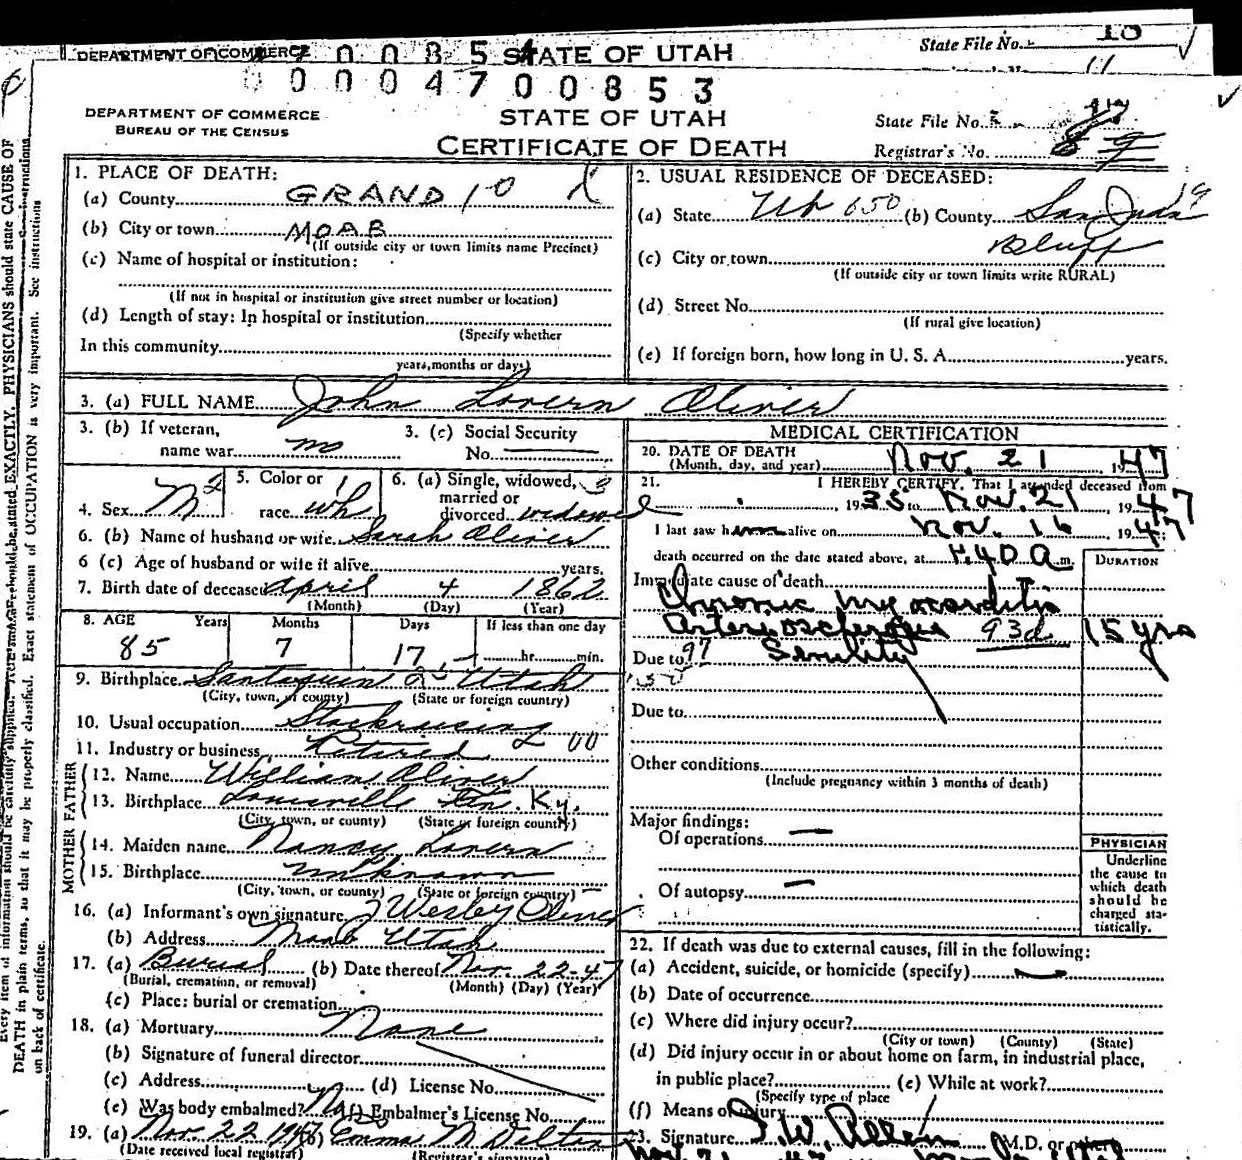 DEPARTMENT OF COMMERCE 0 0 8 5 4 STATE OF UTAH State File No. 18
11
0 0 0 0 4 7 0 0 8 5 3
DEPARTMENT OF COMMERCE
BUREAU OF THE CENSUS
STATE OF UTAH
CERTIFICATE OF DEATH
State File No.
Registrar's No.
Every item of information should be carefully supplied. AGE should be stated EXACTLY. PHYSICIANS should state CAUSE OF
DEATH in plain terms, so that it may be properly classified. Exact statement of OCCUPATION is very important. See instructions
on back of certificate.
1. PLACE OF DEATH:
(a) County GRAND 10
(b) City or town MOAB
(If outside city or town limits name Precinct)
(c) Name of hospital or institution:
(If not in hospital or institution give street number or location)
(d) Length of stay: In hospital or institution
(Specify whether
In this community
years, months or days)
2. USUAL RESIDENCE OF DECEASED:
(a) State 650 (b) County San Juan 19
(c) City or town Bluff
(If outside city or town limits write RURAL)
(d) Street No.
(If rural give location)
(e) If foreign born, how long in U. S. A. years.
3. (a) FULL NAME John Lovern Oliver
3. (b) If veteran,
name war no
3. (c) Social Security
No.
4. Sex M 2
5. Color or 1
race wh
6. (a) Single, widowed, 3
married or
divorced widowed
6. (b) Name of husband or wife Sarah Oliver
6 (c) Age of husband or wife if alive years.
7. Birth date of deceased April 4 1862
(Month) (Day) (Year)
8. AGE Years Months Days If less than one day
85 7 17 hr. min.
9. Birthplace Santaquin Utah
(City, town, or county) (State or foreign country)
10. Usual occupation Stockraising
11. Industry or business Retired 00
FATHER
12. Name William Oliver
13. Birthplace Louisville Ky.
(City, town, or county) (State or foreign country)
MOTHER
14. Maiden name Nancy Lovern
15. Birthplace unknown
(City, town, or county) (State or foreign country)
16. (a) Informant's own signature J Wesley Oliver
(b) Address Moab Utah
17. (a) Burial (b) Date thereof Nov. 22-47
(Burial, cremation, or removal) (Month) (Day) (Year)
(c) Place: burial or cremation
18. (a) Mortuary None
(b) Signature of funeral director
(c) Address (d) License No.
(e) Was body embalmed? No (f) Embalmer's License No.
19. (a) Nov. 22 1947 (b) Emma M Dalton
(Date received local registrar) (Registrar's signature)
MEDICAL CERTIFICATION
20. DATE OF DEATH
(Month, day, and year) Nov. 21 1947
21. I HEREBY CERTIFY, That I attended deceased from
1935 to Nov. 21 1947
I last saw him alive on Nov. 16 1947;
death occurred on the date stated above, at 1:40 a m.
DURATION
Immediate cause of death
Chronic myocarditis
Arteriosclerosis 93d 15 yrs
Due to 97 Senility
Due to
Other conditions
(Include pregnancy within 3 months of death)
Major findings:
Of operations —
Of autopsy —
PHYSICIAN
Underline
the cause to
which death
should be
charged sta-
tistically.
22. If death was due to external causes, fill in the following:
(a) Accident, suicide, or homicide (specify)
(b) Date of occurrence
(c) Where did injury occur?
(City or town) (County) (State)
(d) Did injury occur in or about home on farm, in industrial place,
in public place? (e) While at work?
(Specify type of place
(f) Means of injury
23. Signature I. W. Allen M.D. or other